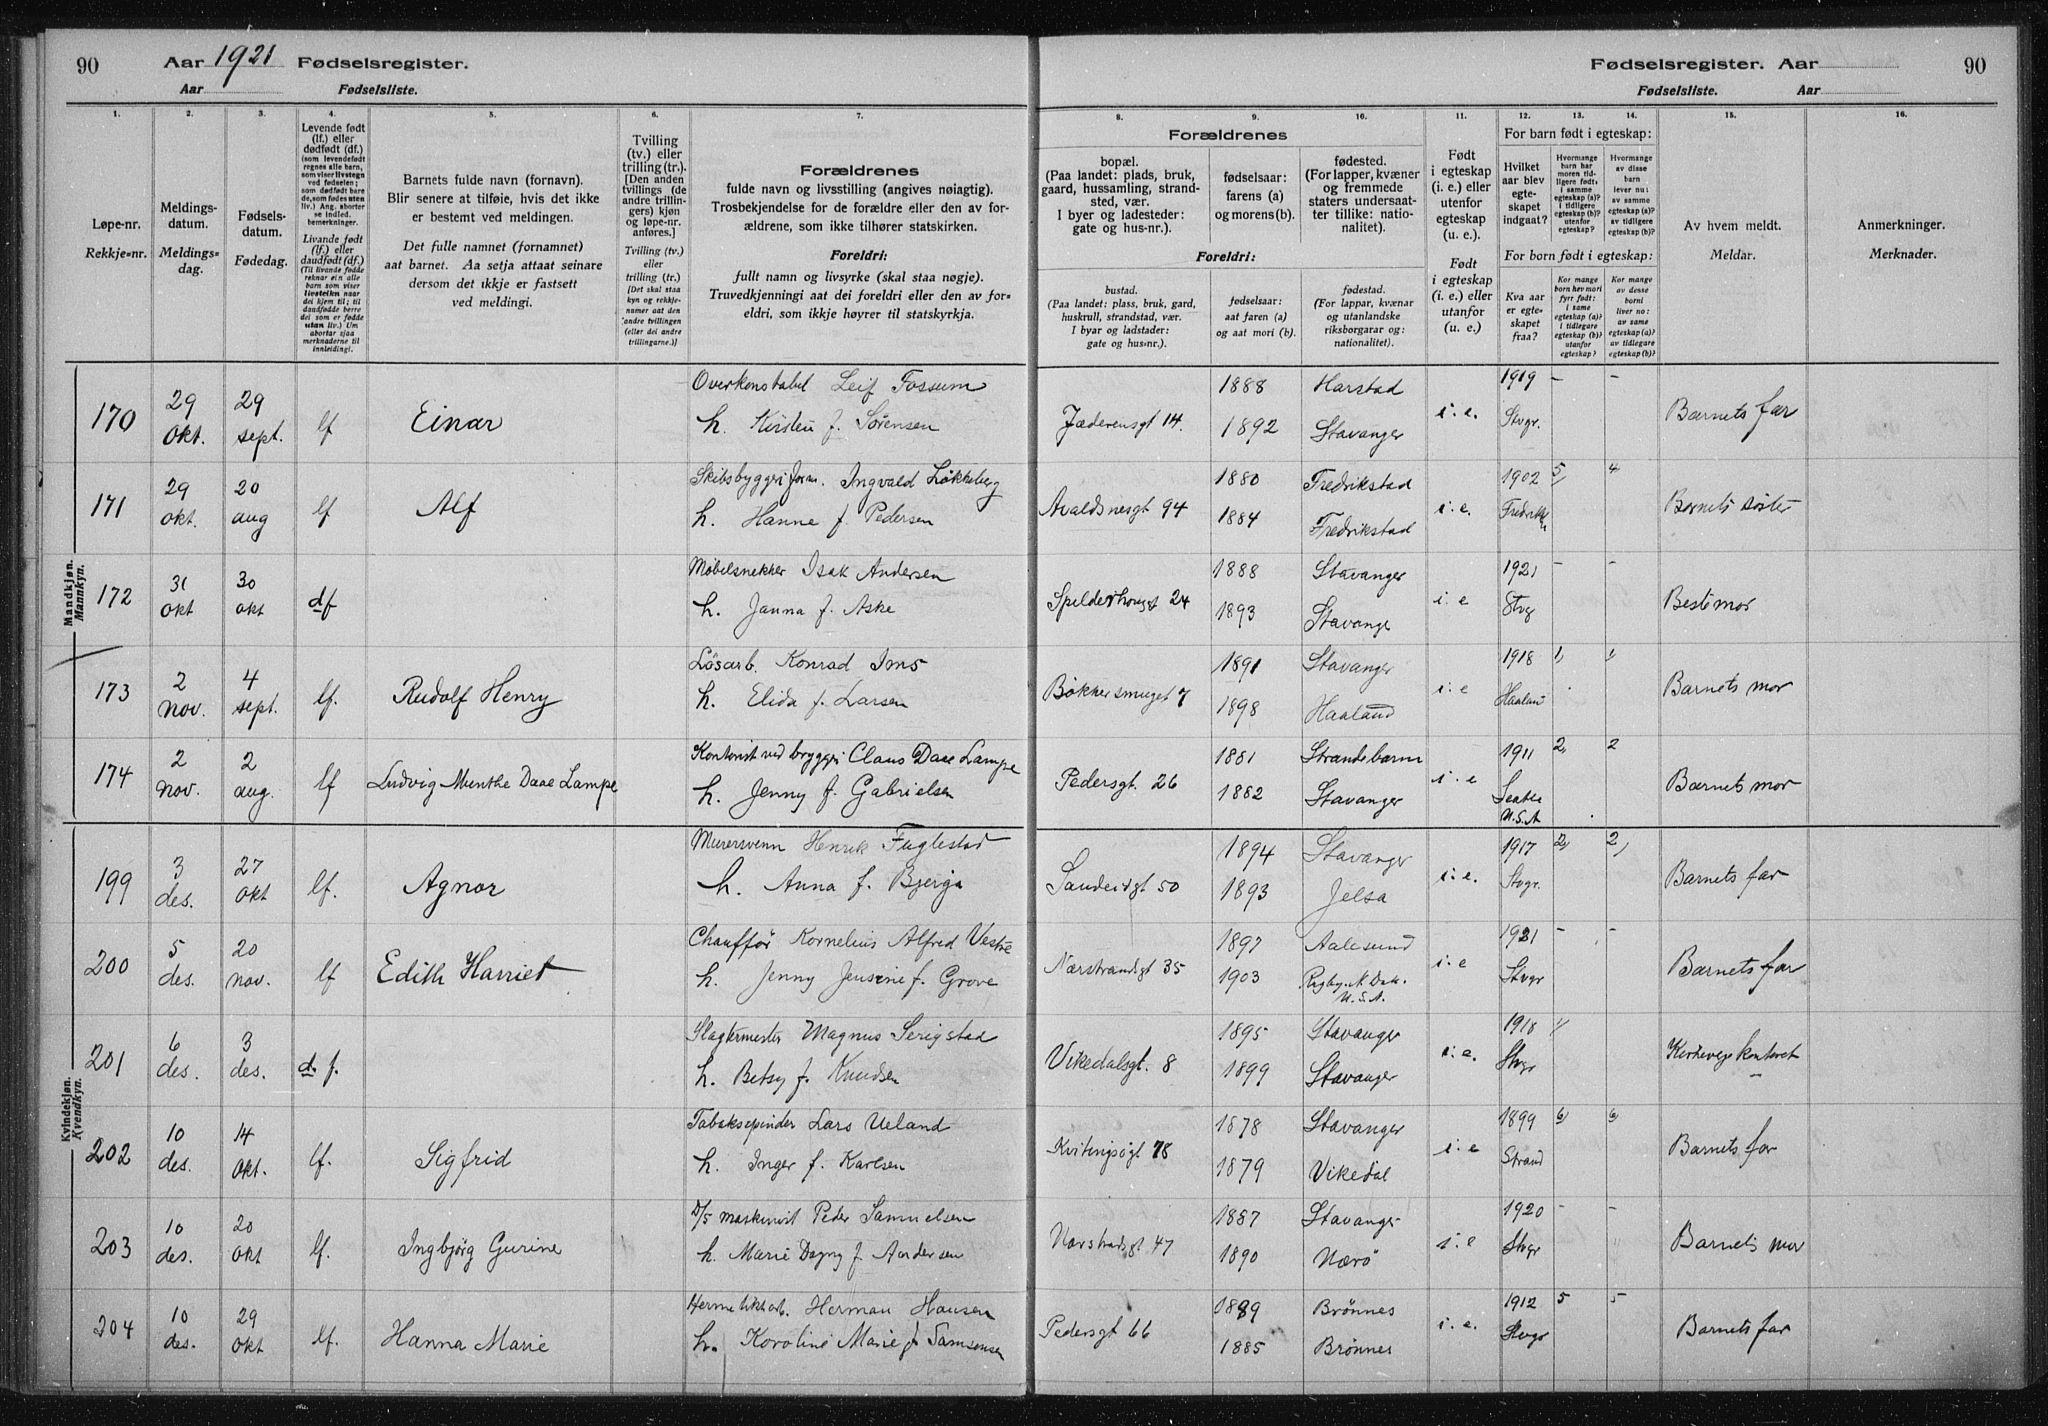 90 Aar 1921 Fødselsregister.
Aar Fødselsliste.
Fødselsregister. Aar 90
Fødselsliste. Aar
1. 2. 3. 4. 5. 6. 7. 8. 9. 10. 11. 12. 13. 14. 15. 16.
Løpe-nr.
Rekkje-nr.
Meldings-
datum.
Meldings-
dag.
Fødsels-
datum.
Fødedag.
Levende født
(lf.) eller
dødfødt (df.)
(som levendefødt
regnes alle barn,
som viser livstegn
ved fødselen;
som dødfødt bare
de, som fødes uten
liv.) Ang. aborter
se indled.
bemerkninger.
Livande født
(lf.) eller
daudfødt (df.)
(Til livande fødde
reknar ein alle
barn som viser
livsteikn naar
dei kjem til; til
daudfødde berre
dei som er fødde
utan liv.) Um
abortar sjaa
merknaderne til
innleidingi.
Barnets fulde navn (fornavn).
Blir senere at tilføie, hvis det ikke
er bestemt ved meldingen.
Det fulle namnet (fornamnet)
aat barnet. Aa setja attaat seinare
dersom det ikkje er fastsett
ved meldingi.
Tvilling
(tv.) eller
trilling (tr.).
[Den anden
tvillings (de
andre trillin-
gers) kjøn
og løpe-nr.
anføres.]
Tvilling (tv.)
eller
trilling (tr.)
[Det skal staa
kyn og rekkje-
numer aat den
andre tvillingen
(eller dei andre
trillingarne.)]
Forældrenes
fulde navn og livsstilling (angives nøiagtig).
Trosbekjendelse for de forældre eller den av for-
ældrene, som ikke tilhører statskirken.
Foreldri:
fullt namn og livsyrke (skal staa nøgje).
Truvedkjenningi aat dei foreldri eller den av for-
eldri, som ikkje høyrer til statskyrkja.
Forældrenes
bopæl.
(Paa landet: plads, bruk,
gaard, hussamling, strand-
sted, vær.
I byer og ladesteder:
gate og hus-nr.).
fødselsaar:
farens (a)
og morens (b).
fødested.
(For lapper, kvæner
og fremmede
staters undersaat-
ter tillike: natio-
nalitet).
Foreldri:
bustad.
(Paa landet: plass, bruk, gard,
huskrull, strandstad, vær.
I byar og ladstader:
gate og hus-nr.).
fødselsaar:
aat faren (a)
og aat mori (b).
fødestad.
(For lappar, kvænar
og utanlandske
riksborgarar og:
nationalitet).
Født
i egteskap
(i. e.) eller
utenfor
egteskap
(u. e.).
Født
i egteskap
(i. e.) eller
utanfor
(u. e.).
For barn født i egteskap:
Hvilket
aar blev
egte-
skapet
indgaat?
Hvormange
barn har
moren tid-
ligere født,
i samme
egteskap (a)?
utenfor
egteskap (b)?
Hvormange
av disse
barn
lever nu:
av samme
egteskap (a)?
av tidligere
egteskap (b)?
For barn født i egteskap:
Kva aar
er egte-
skapet
fraa?
Kor mange
born hev mori
fyrr født:
i same
egteskap (a)?
i tidlegare
egteskap (b)?
utanfor
egteskap?
Kor mange
av desse
borni
liver no:
av same
egteskap (a)?
av tidlegare
egteskap (b)?
Av hvem meldt.
Meldar.
Anmerkninger.
Merknader.
Mandkjøn.
Mannkyn.
170 29 Okt. 29 sept. lf Einar Overkonstabel Leif Fossum
h. Kirsten f. Sørensen
Jæderensgt 14. 1888 1892 Harstad Stavanger i. e. 1919 Stvgr. - - Barnets far
171 29 okt. 20 aug lf Alf Skibsbyggeriform. Ingvald Løkkeberg
h. Hanne f. Pedersen
Avaldsnesgt 94 1880 1884 Fredrikstad Fredrikstad i. e. 1902 5 4 Barnets søster
172 31 okt 30 okt df Møbelsnekker Isak Andersen
h. Janna f. Aske
Spilderhougt 24 1888 1893 Stavanger Stavange i. e 1921 Stvg - - Bestemor
173 2 nov. 4 sept. lf. Rudolf Henry Løsarb. Konrad Ims
h. Elida f. Larsen
Bøkkersmuget 7 1891 1898 Stavanger Haaland i. e 1918 Haaland 1, 1, Barnets mor
174 2 nov. 2 aug. lf Ludvig Munthe Daae Lampe Kontorist ved bryggeri Claus Daae Lampe
h. Jenny f. Gabrielsen
Pedersgt. 26 1881 1882 Strandebarm Stavanger i. e 1911 U.S.A 2, 2 Barnets mor
Kvindekjøn.
Kvendkyn.
199 3 des. 27 okt lf. Agnor Murersvenn Henrik Fuglestad
h. Anna f. Bjerga
Sandeidgt 50 1894 1893 Stavanger Jelsa i. e. 1917 Stvgr. 2, 2, Barnets far
200 5 des. 20 nov. lf Edith Harriet Chauffør Kornelius Alfred Vestre
h. Jenny Jensine f. Grove
Nærstrandgt 35 1897 1903 Aalesund Rugby. N Dak. U.S.A. i. e 1921 Stvgr - - Barnets far
201 6 des. 3 des. d. f. Slagtermester Magnus Serigstad
h. Betsy f. Knudsen
Vikedalsgt. 8 1895 1899 Stavanger Stavanger i. e. 1918 Stvgr Kirkevergekontoret
202 10 des. 14 Okt. lf. Sigfrid Tobakspinder Lars Ueland
h. Inger f. Karlsen
Kvitingsøgt 78 1878 1879 Stavanger Vikedal i. e 1899 Strand 6, 6, Barnets far
203 10 des. 20 okt lf. Ingbjørg Gurine D/S maskinist Peder Samuelsen
h. Marie Dagny f. Andersen
Nærstradsgt 47 1887 1890 Stavanger Nærø i. e 1920 Stvgr - - Barnets mor
204 10 des. 29 okt lf. Hanna Marie Hermetikkarb. Herman Hansen
h. Karoline Marie f. Samsonsen
Pedersgt 66 1889 1885 Brønnes Brønnes i. e. 1912 Stvgr 5 5 Barnets far